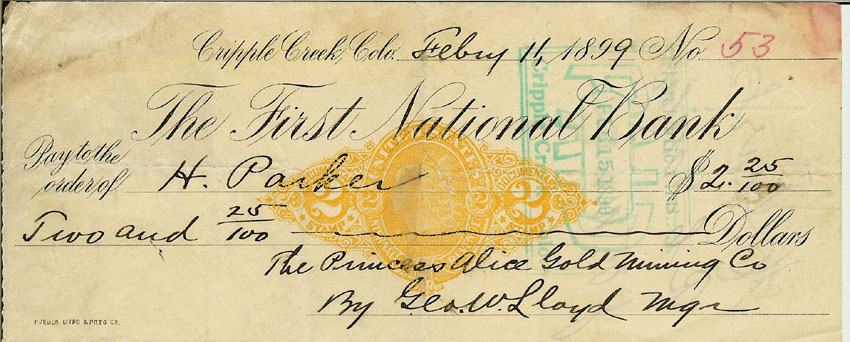 Cripple Creek, Colo. Febry 11, 1899 No. 53
The First National Bank
Pay to the order of H. Parker $2. 25/100
Two and 25/100 Dollars
The Princess Alice Gold Mining Co
By Geo. W. Lloyd Mgr
UNITED STATES
2 2 2 2
STAMP
PUEBLO LITHO & PRTG CO.
Cripple Cr